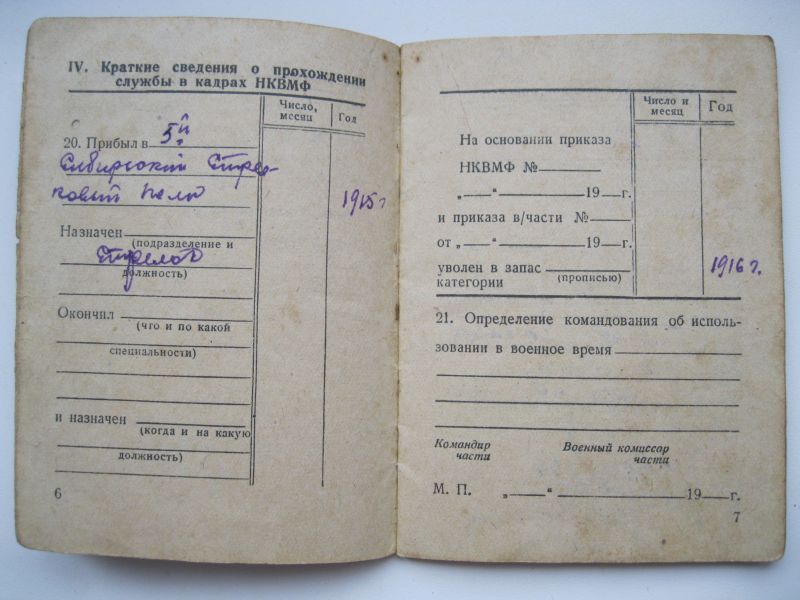 IV. Краткие сведения о прохождении
службы в кадрах НКВМФ
Число, месяц
Год
20. Прибыл в 5й
Сибирский Стрел-
ковый полк
1915 г
Назначен
(подразделение и
Стрелок
должность)
Окончил
(что и по какой
специальности)
и назначен
(когда и на какую
должность)
6
Число и месяц
Год
На основании приказа
НКВМФ №
„ — “ 19 — г.
и приказа в/части №
от „ — “ 19 — г.
уволен в запас
(прописью)
категории
1916 г.
21. Определение командования об исполь-
зовании в военное время
Командир
части
Военный комиссар
части
М. П. „ — “ 19 — г.
7